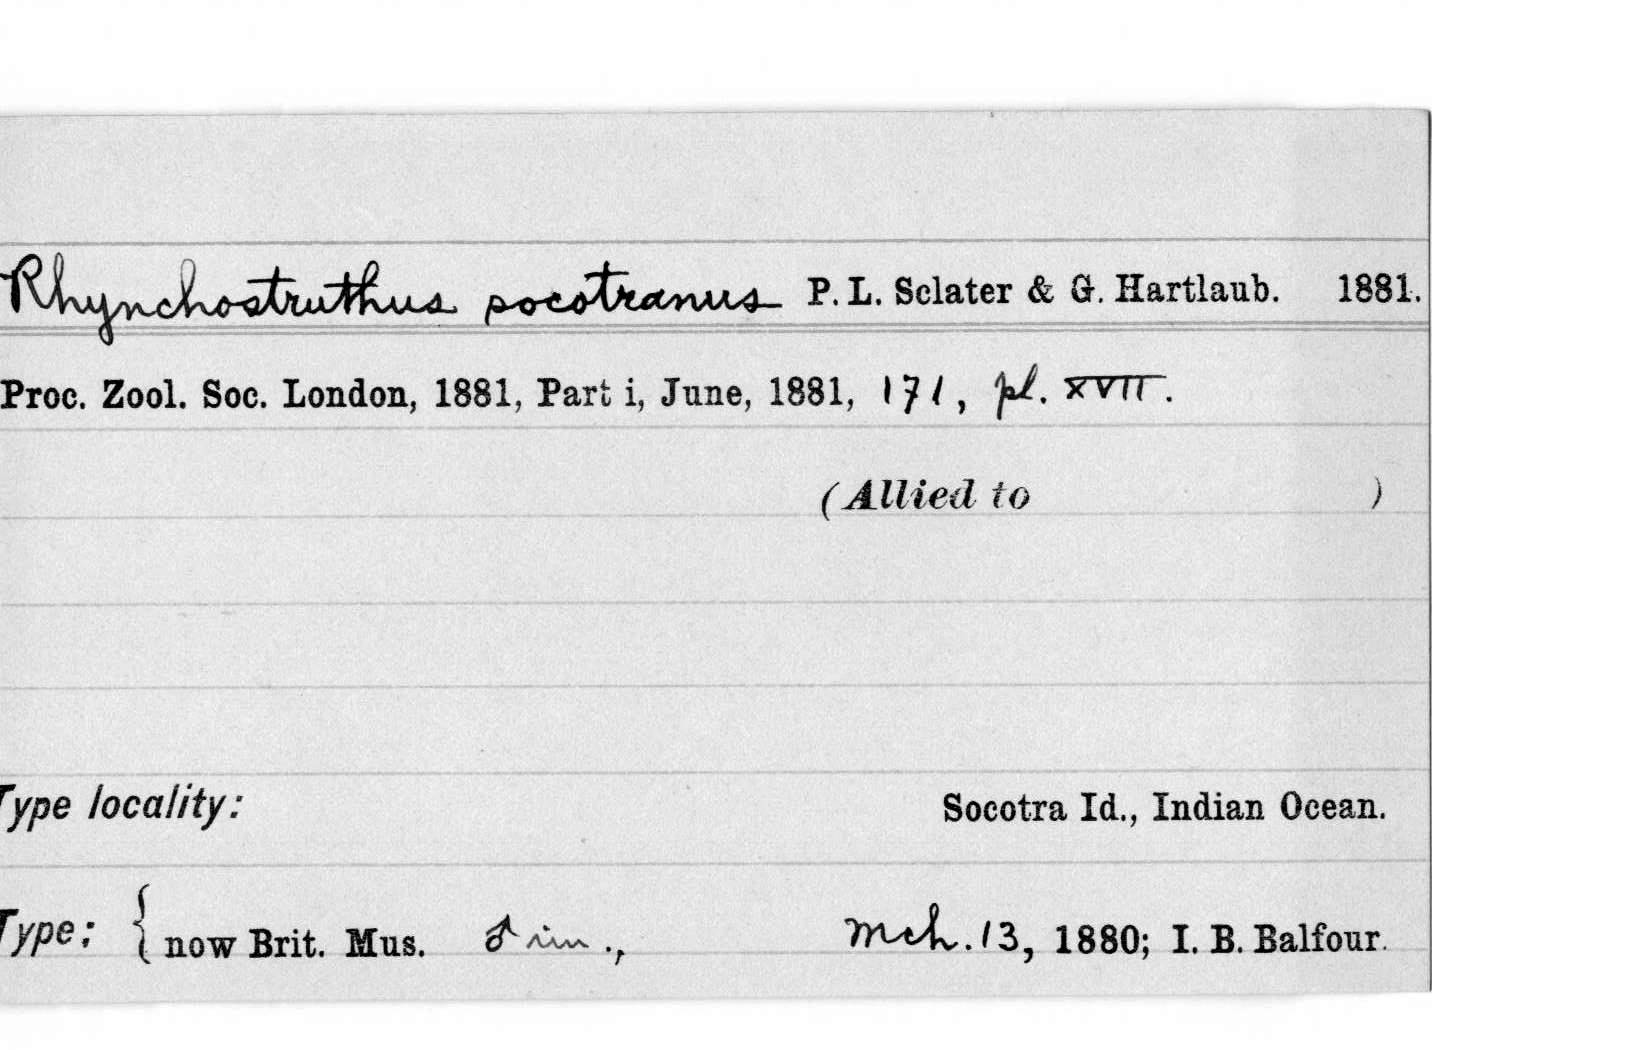 Rhynchostruthus socotranus P. L. Sclater & G. Hartlaub. 1881.
Proc. Zool. Soc. London, 1881, Part i, June, 1881, 171, pl. XVII.
(Allied to )
Type locality: Socotra Id., Indian Ocean.
Type: { now Brit. Mus. ♂ im., Mch. 13, 1880; I. B. Balfour.